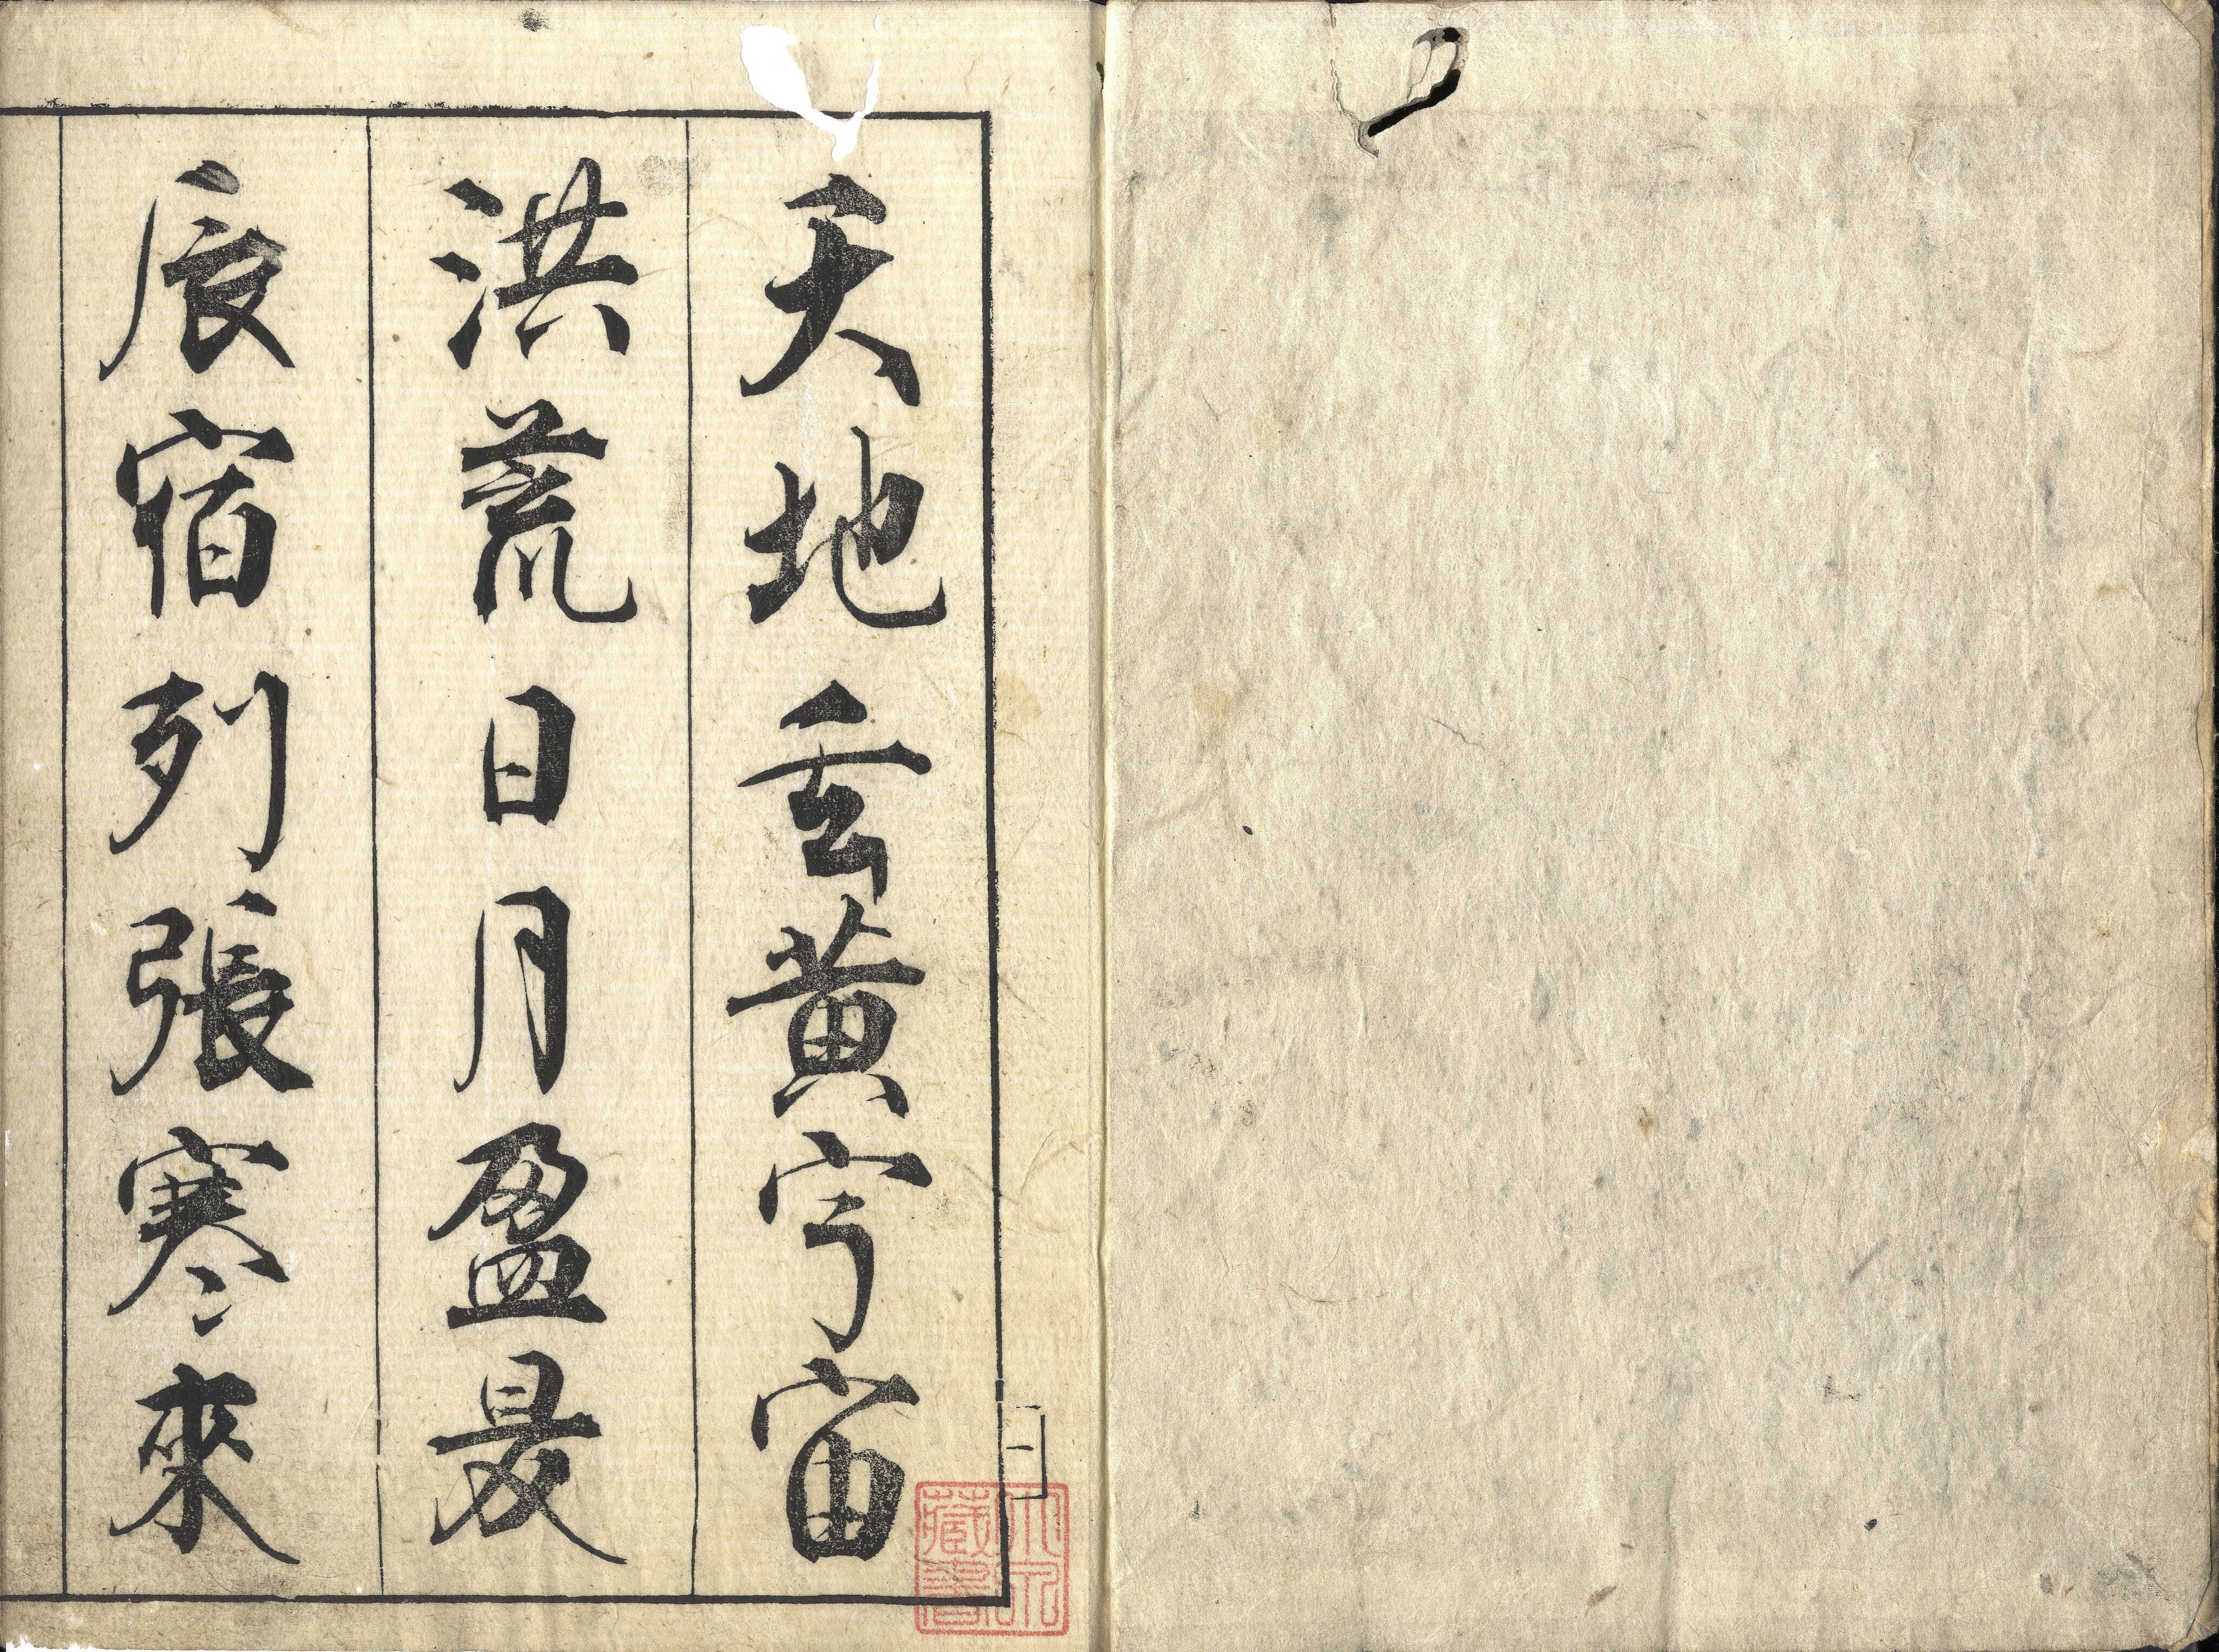 天地玄黄宇宙
洪荒日月盈昃
辰宿列張寒來
一
藏書